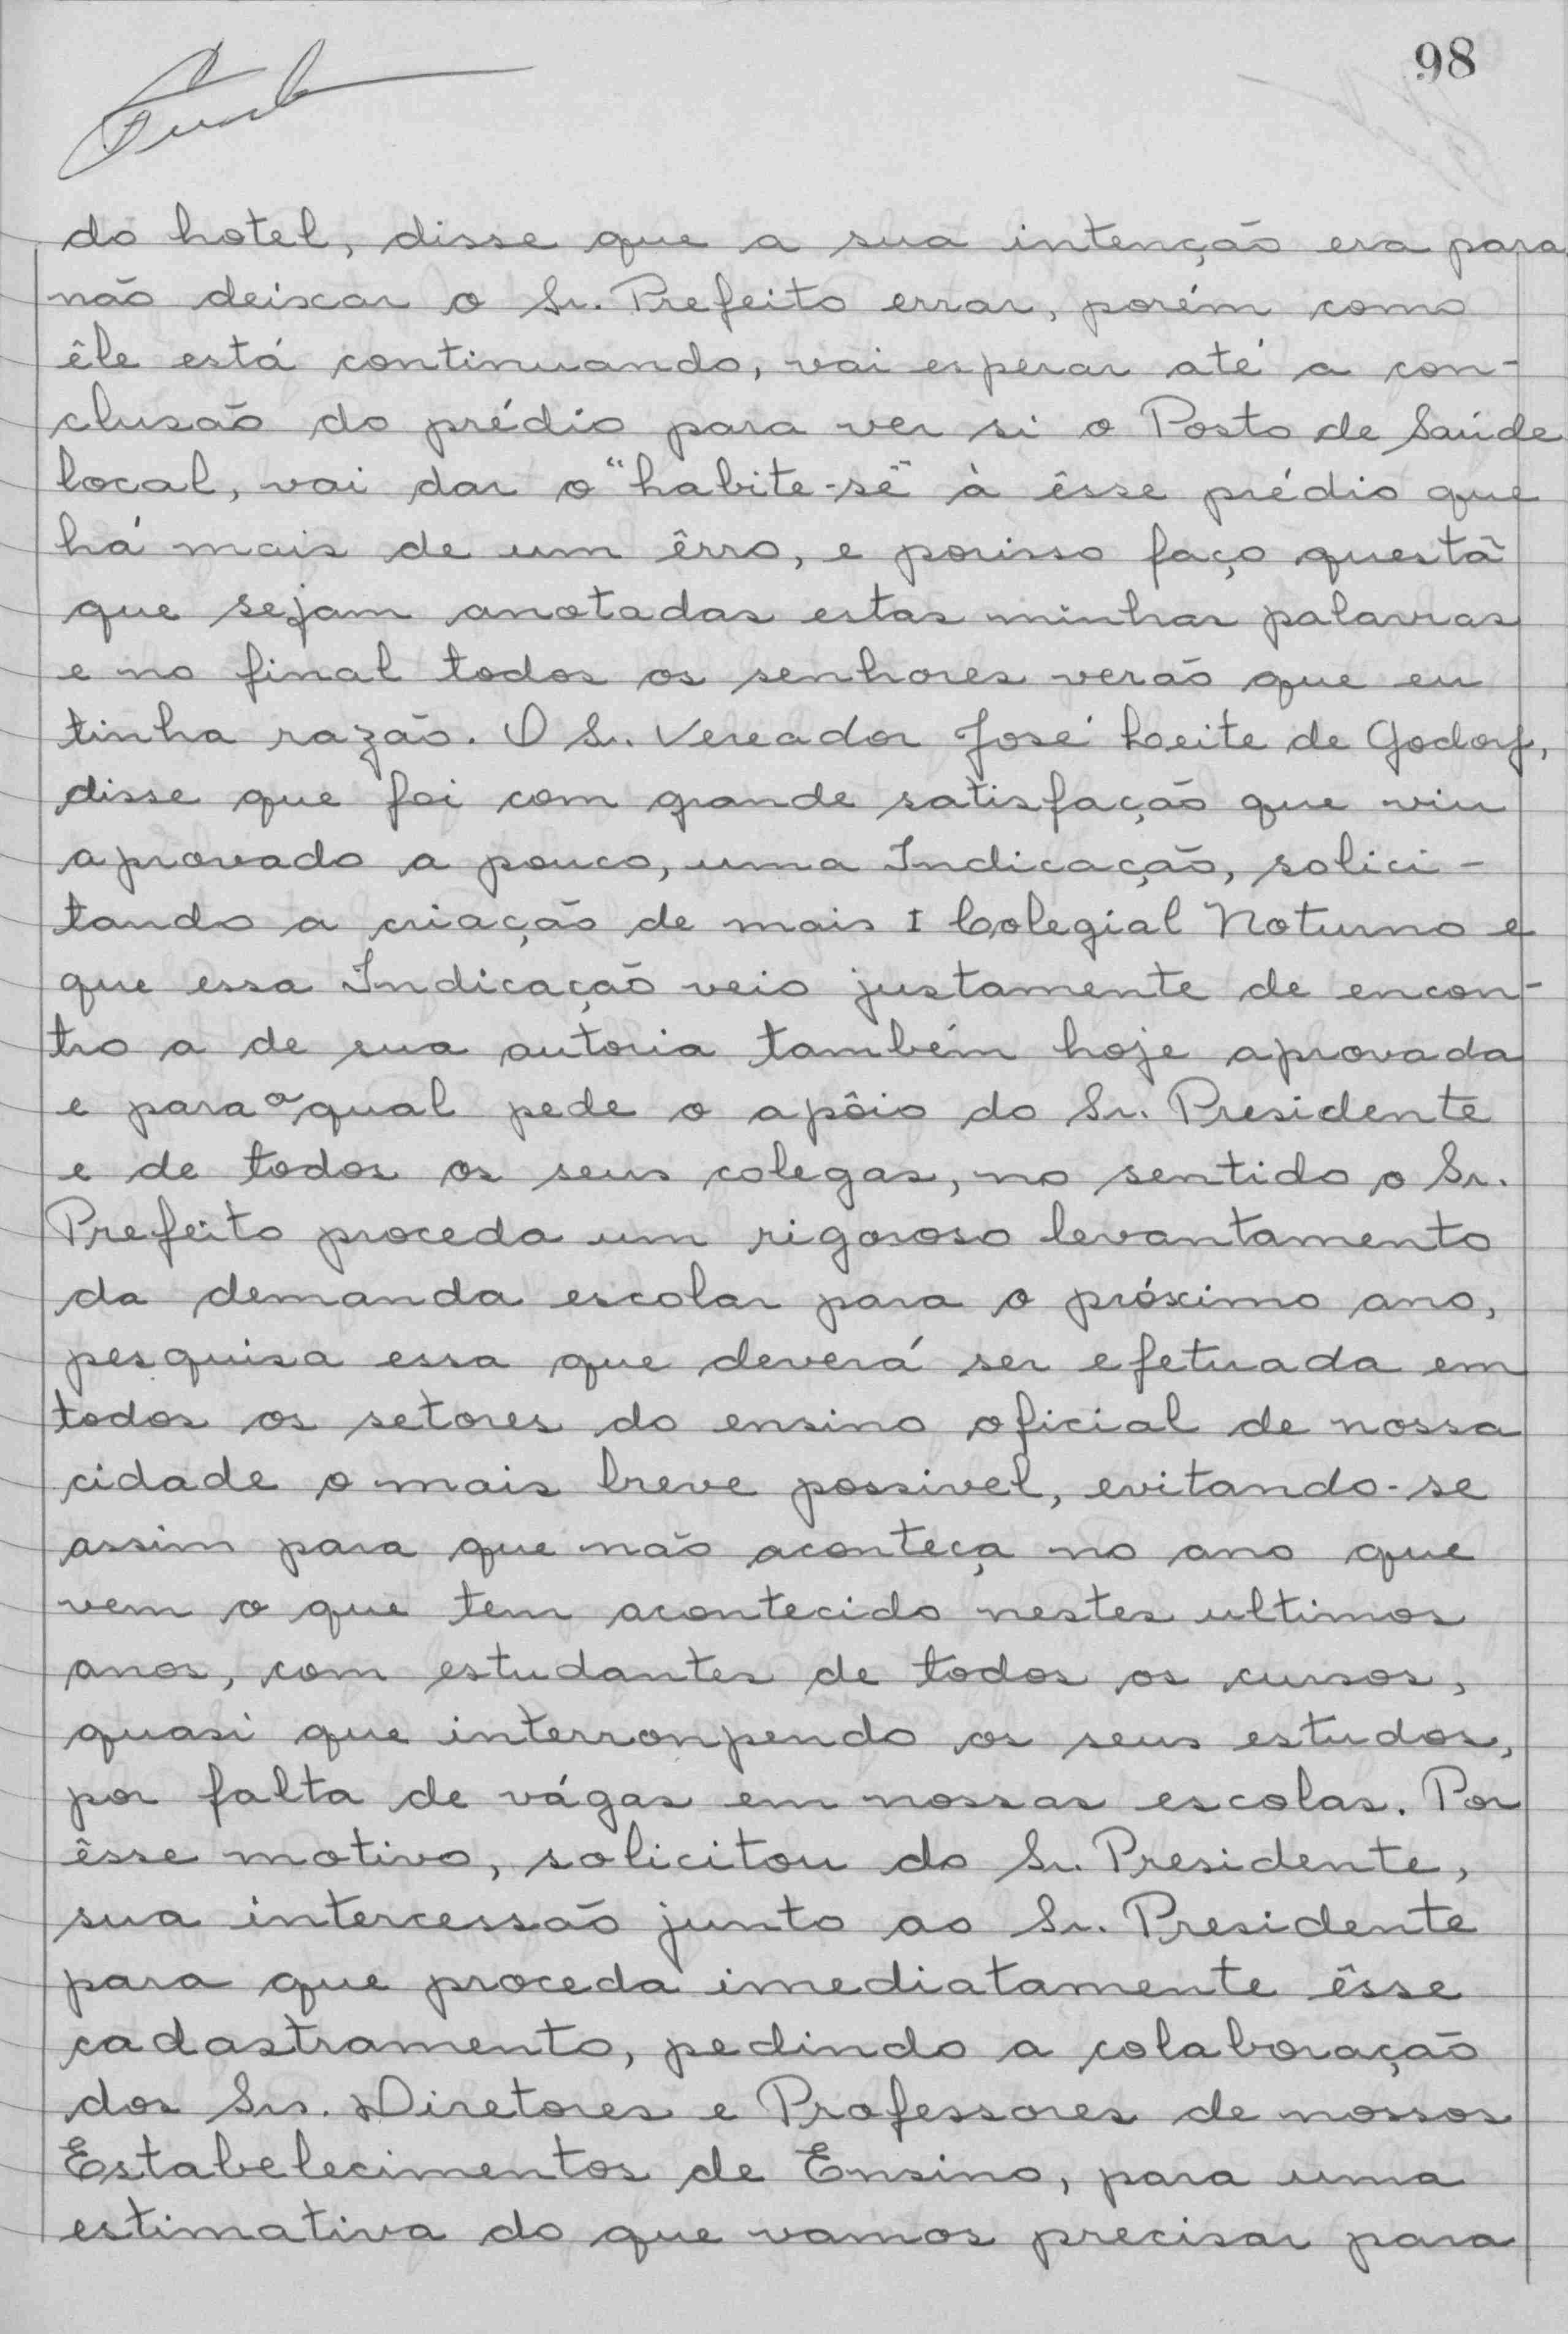 98
do hotel, disse que a sua intenção era para
não deixar o Sr. Prefeito errar, porém como
êle está continuando, vai esperar até a con-
clusão do prédio para ver si o Posto de Saúde
local, vai dar o "habite-se" à êsse prédio que
há mais de um êrro, e porisso faço questã
que sejam anotadas estas minhas palavras
e no final todos os senhores verão que eu
tinha razão. O Sr. Vereador José Leite de Godoy,
disse que foi com grande satisfação que viu
aprovado a pouco, uma Indicação, solici-
tando a criação de mais 1 Colegial Noturno e
que essa Indicação veio justamente de encon-
tro a de sua autoria também hoje aprovada
e para a qual pede o apôio do Sr. Presidente
e de todos os seus colegas, no sentido o Sr.
Prefeito proceda um rigoroso levantamento
da demanda escolar para o próximo ano,
pesquisa essa que deverá ser efetuada em
todos os setores do ensino oficial de nossa
cidade o mais breve possivel, evitando-se
assim para que não aconteça no ano que
vem o que tem acontecido nestes ultimos
anos, com estudantes de todos os cursos,
quasi que interronpendo os seus estudos,
por falta de vágas em nossas escolas. Por
êsse motivo, solicitou do Sr. Presidente,
sua intercessão junto ao Sr. Presidente
para que proceda imediatamente êsse
cadastramento, pedindo a colaboração
dos Srs. Diretores e Professores de nossos
Estabelecimentos de Ensino, para uma
estimativa do que vamos precisar para